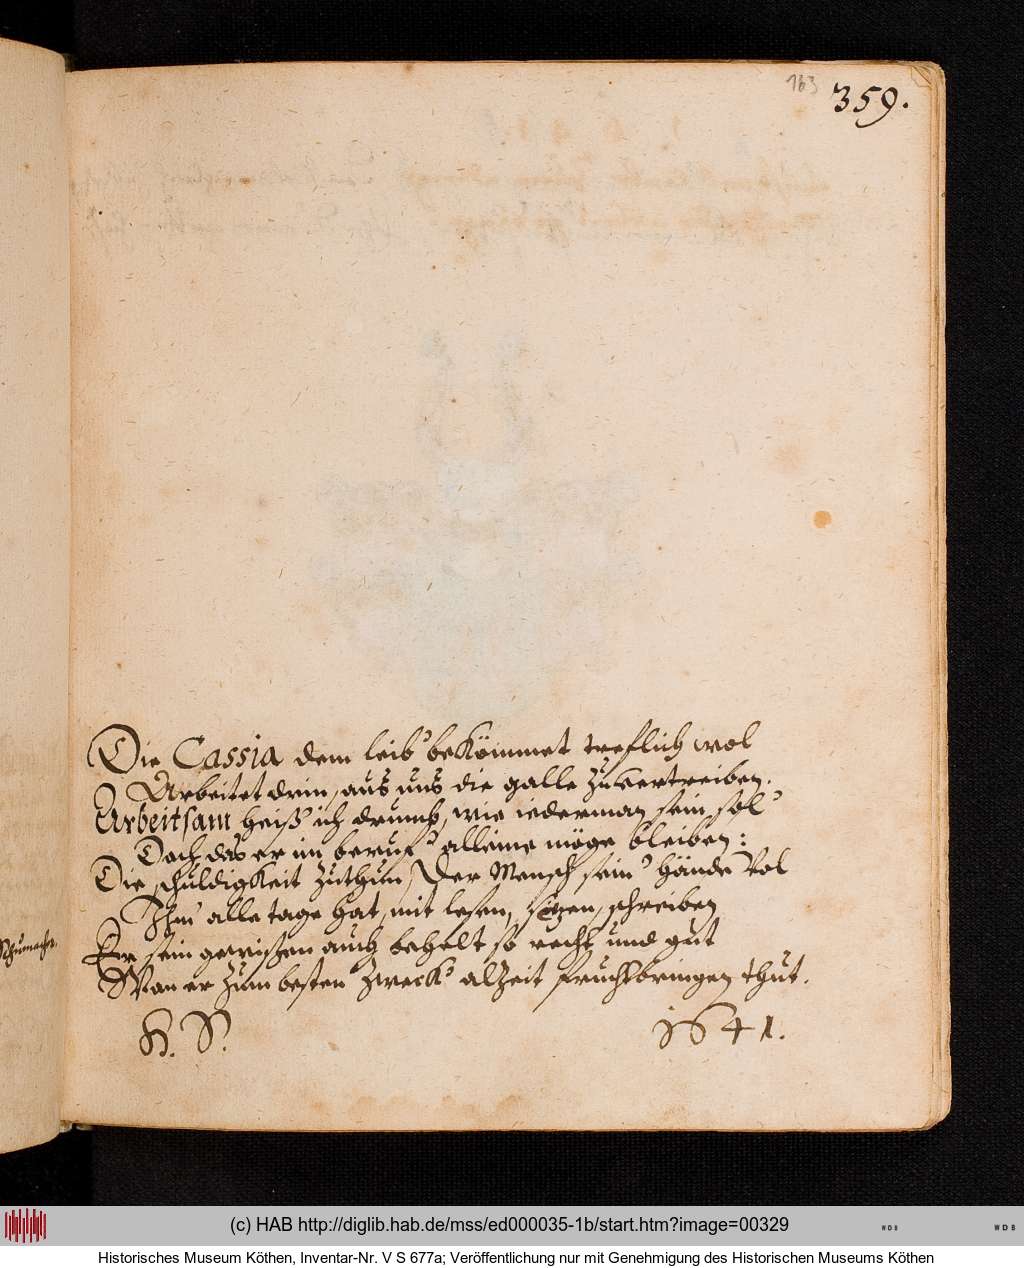 163
359.
Die Cassia dem leib' bekömmet treflich wol
Arbeitet drin, aus uns die galle zuvertreiben.
Arbeitsam heiß' ich drumb, wie iederman sein sol'
Doch das er im beruf' alleine möge bleiben:
Die schuldigkeit zuthun, Der Mensch sein' hände vol
Ihm' alle tage hat, mit lesen, sitzen, schreiben
Er sein gewissen auch behelt so recht und gut
Wan er zum besten zweck' alzeit fruchtbringen thut.
H. S. 1641.
Schumacher.
(c) HAB http://diglib.hab.de/mss/ed000035-1b/start.htm?image=00329
WDB
WDB
Historisches Museum Köthen, Inventar-Nr. V S 677a; Veröffentlichung nur mit Genehmigung des Historischen Museums Köthen